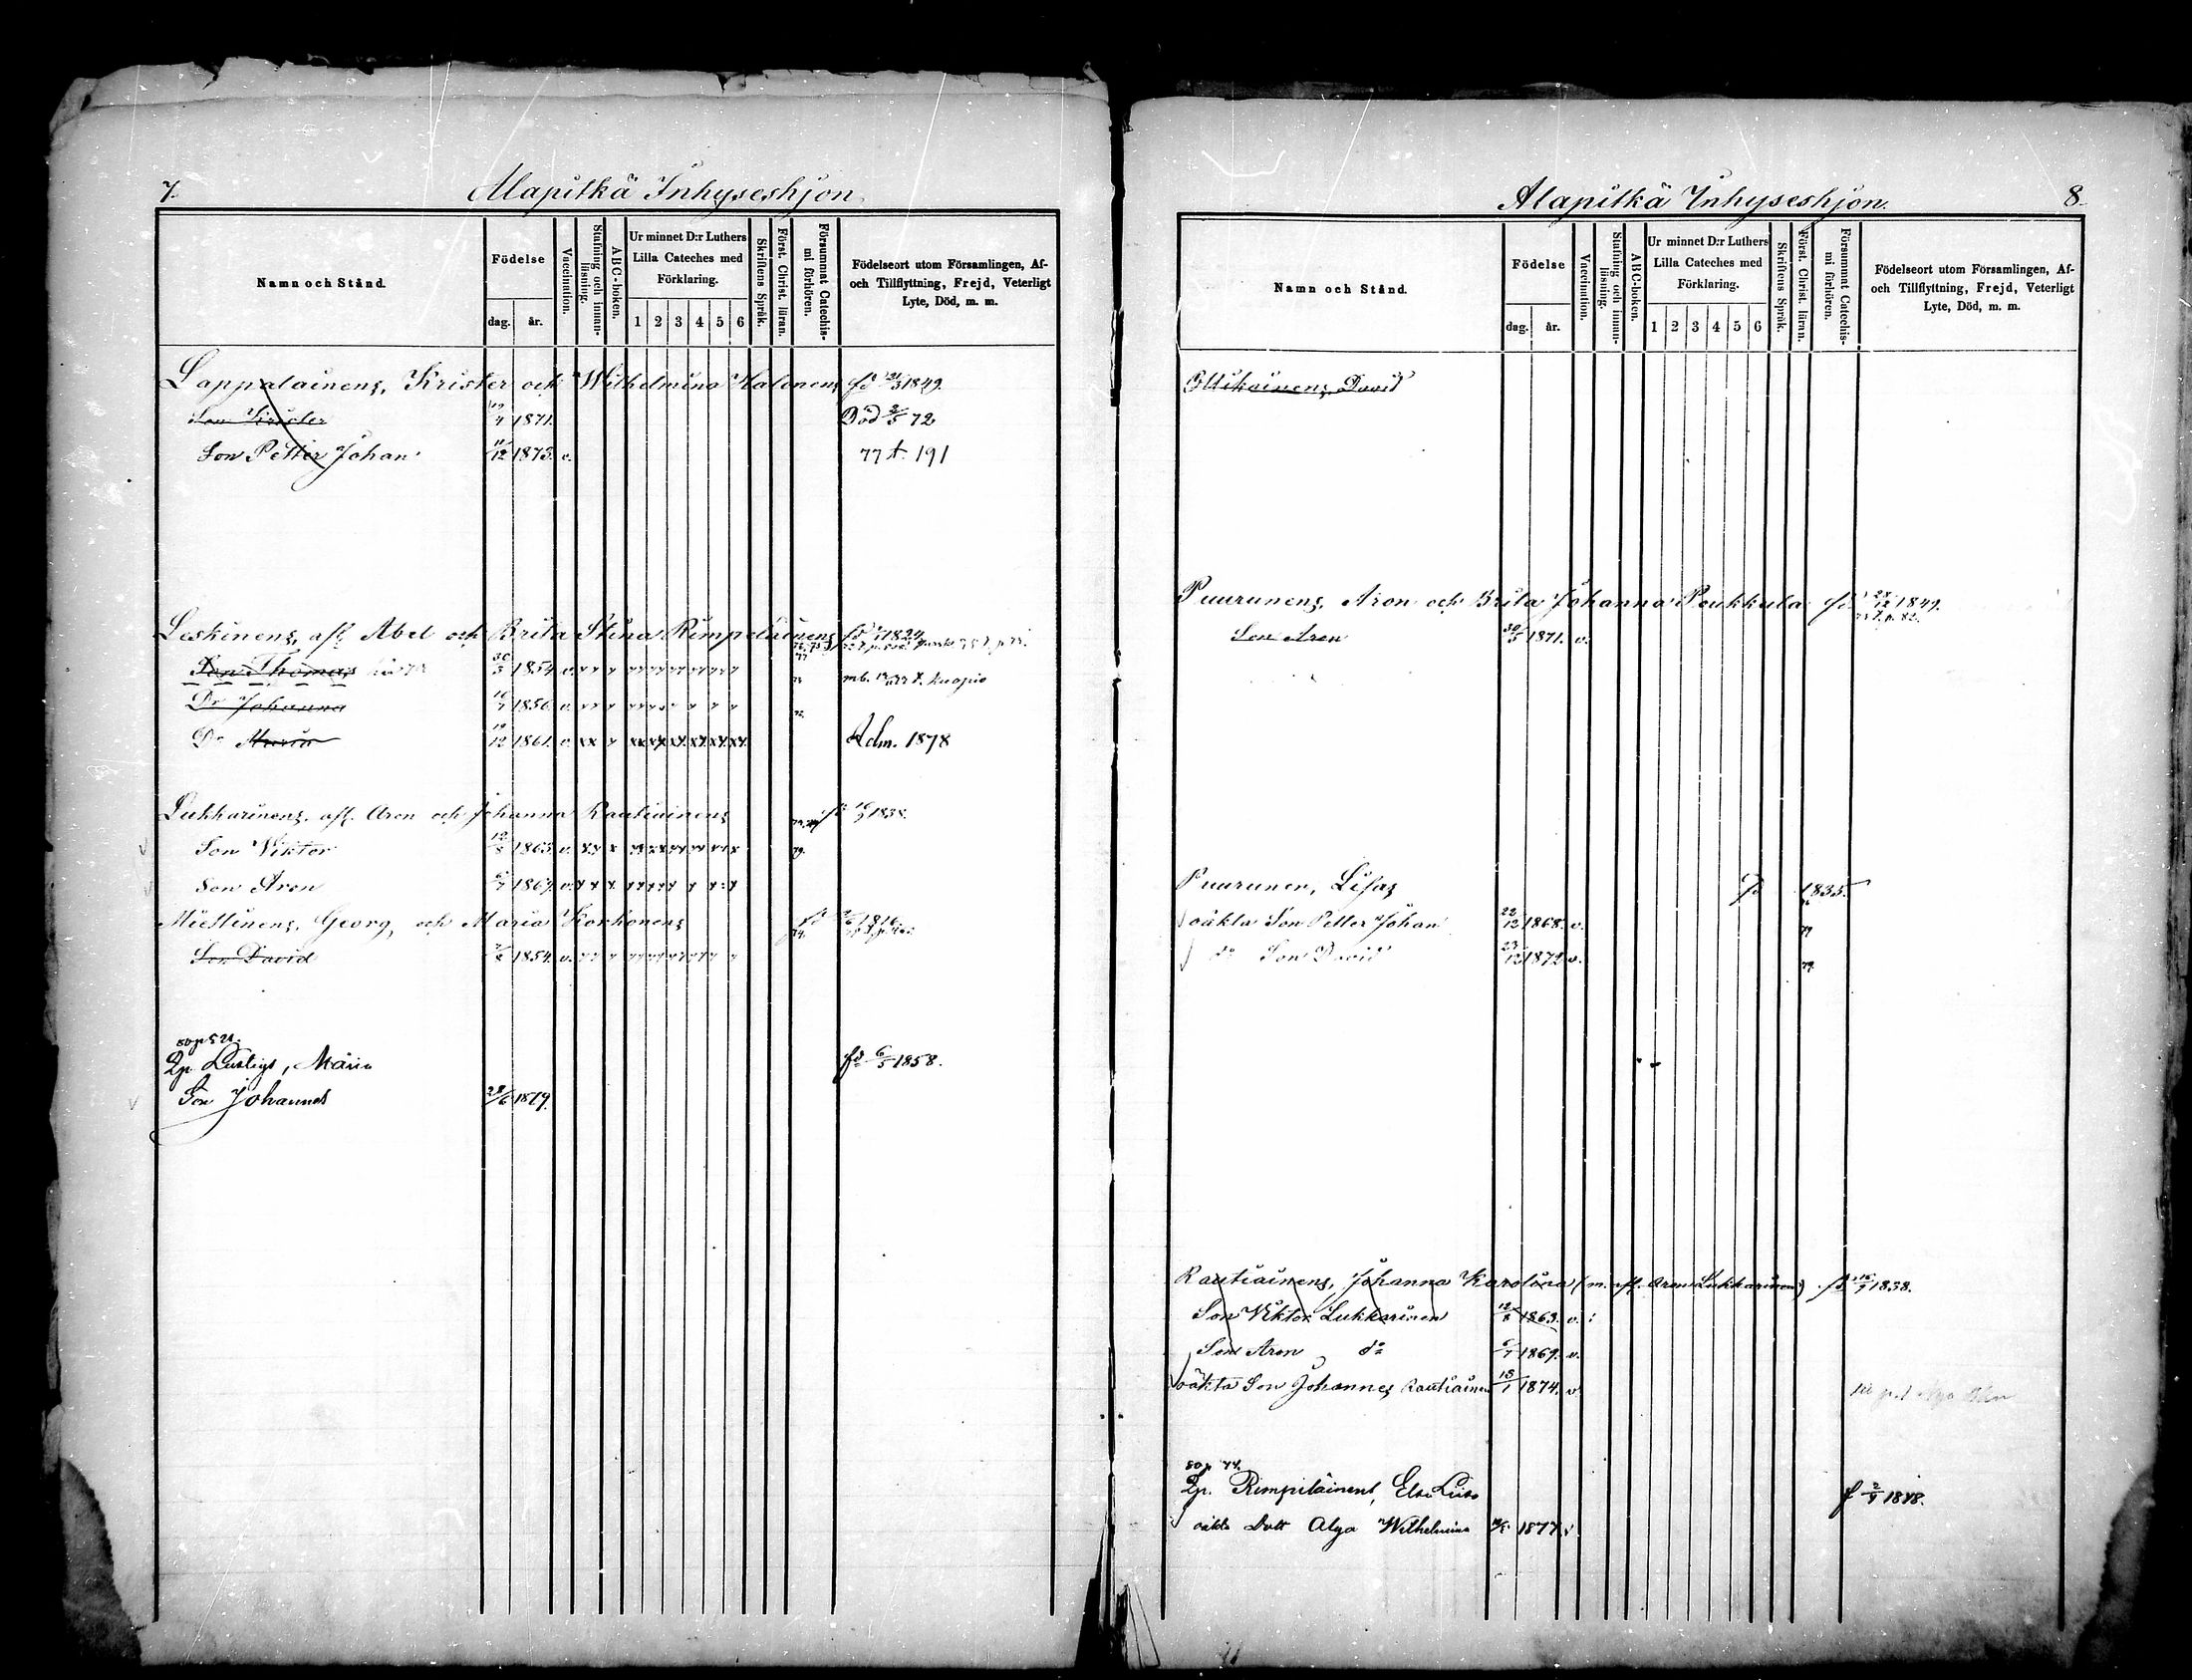 7.
Alapitkä Inhyseshjon
Namn och Stånd.
Födelse
dag.
år.
Vaccination.
Stafning och innan-
läsning.
ABC-boken.
Ur minnet D:r Luthers
Lilla Cateches med
Förklaring.
1 2 3 4 5 6
Skriftens Språk.
Först. Christ. läran.
Försummat Catechis-
mi förhören.
Födelseort utom Församlingen, Af-
och Tillflyttning, Frejd, Veterligt
Lyte, Död, m. m.
Lappalainens, Krister och Wilhelmina Halonens fd 1849.
Son Krister 4 1871. Död 2/5 72
Son Petter Johan 11/12 1873. v. 77 t. 191
Leskinens, afl. Abel och Brita Stina Rimpeläinens fd 1824
Son Thomas 30/3 1854. v. Kuopio
Dr Johanna 16 1856. v.
Dr Maria 19/12 1861. v. xx Adm. 1878
Lukkarinens, afl. Aron och Johanna Rautiainens fd 1838.
Son Viktor 12/8 1863. v. 79.
Son Aron 6/7 1869. v.
Miettinens, Georg, och Maria Korhonens fd 1816.
Son David 1854. v.
Lustigs, Maria fd 6/5 1858.
Son Johannes 28/6 1879.
Alapitkä Inhyseshjon.
8.
Namn och Stånd.
Födelse
dag.
år.
Vaccination.
Stafning och innan-
läsning.
ABC-boken.
Ur minnet D:r Luthers
Lilla Cateches med
Förklaring.
1 2 3 4 5 6
Skriftens Språk.
Först. Christ. läran.
Försummat Catechis-
mi förhören.
Födelseort utom Församlingen, Af-
och Tillflyttning, Frejd, Veterligt
Lyte, Död, m. m.
David
Puurunens, Aron och Brita Johanna Poukkula fd 28/12 1849.
Son Aron 30/5 1871. v.
Puurunen, Lisas fd 1835.
oäkta Son Petter Johan 22/12 1868. v. 79
do Son David 23/12 1872 v. 79.
Rautiainens, Johanna Karolina (m. afl. Aron Lukkarinens) fd 16/7 1838.
Son Viktor Lukkarinen 12/8 1863. v.
Son Aron do 6/7 1869. v.
oäkta Son Johannes Rautiainen 18/1 1874. v.
Rimpiläinens, Elsa Lisa f 2/9 1848.
oäkta Dott Alga Wilhelmina 1877. v